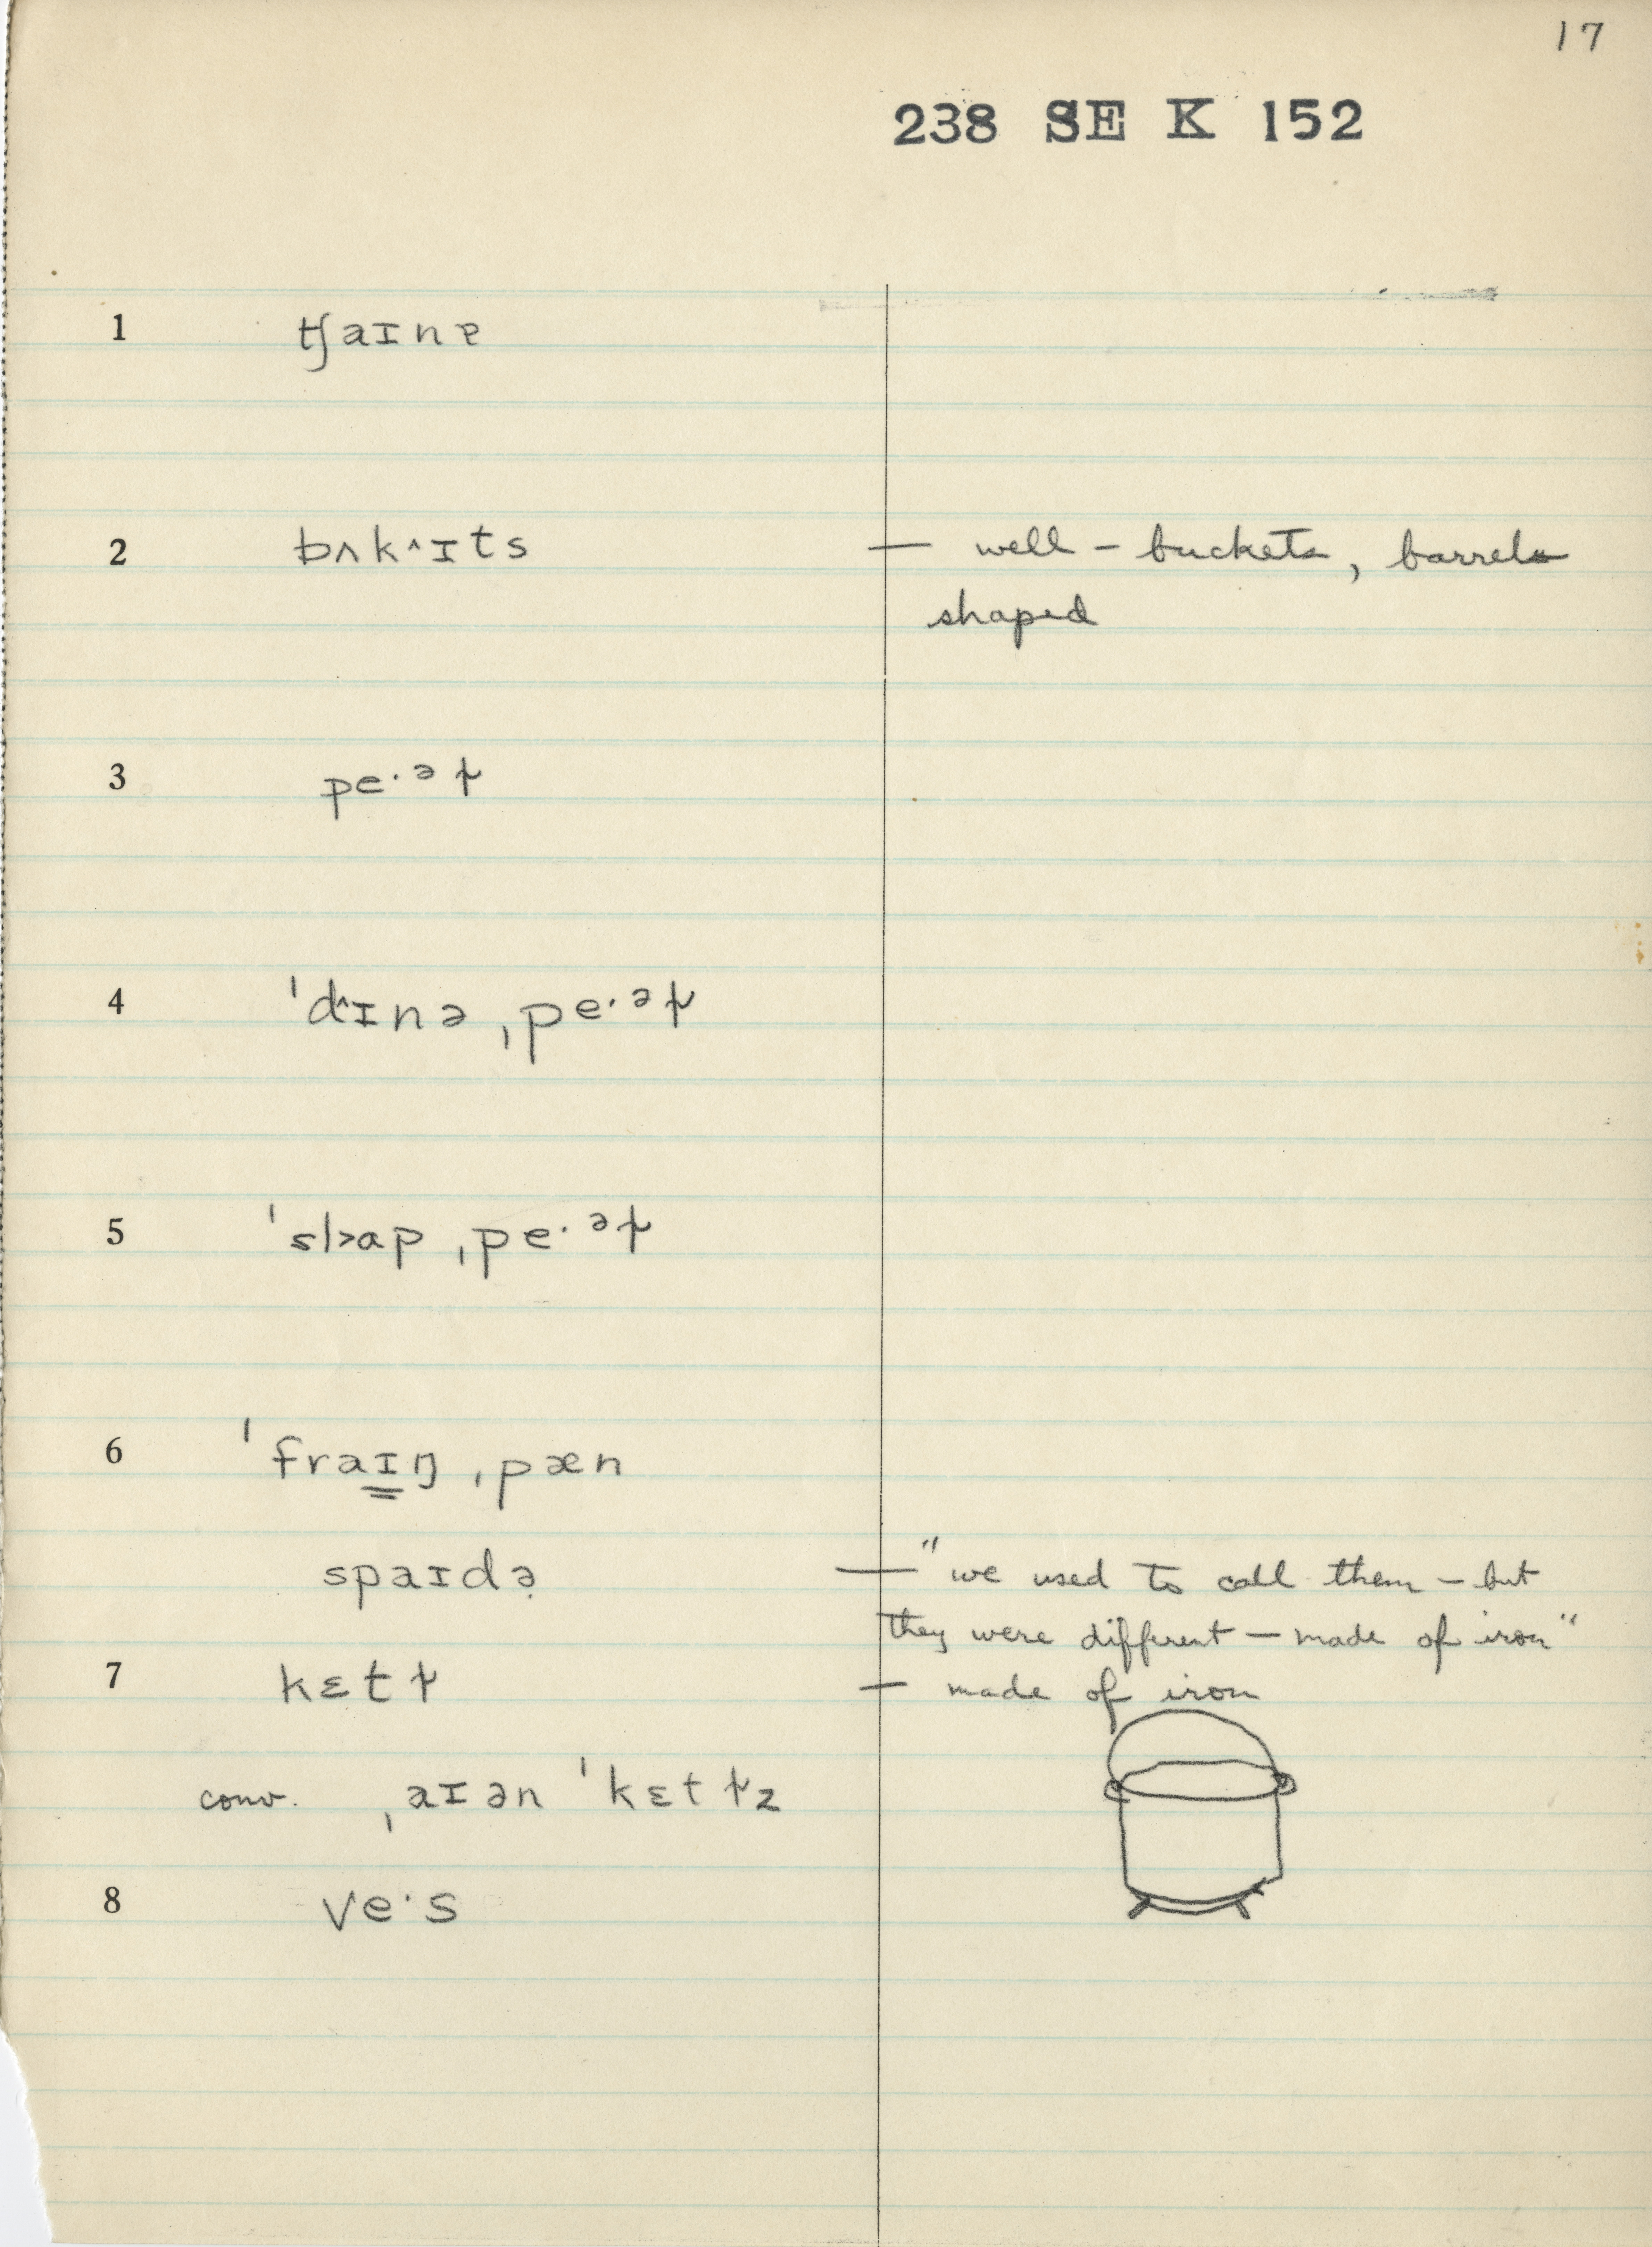 17
238 SE K 152
1 tʃaɪnɐ
2 bʌk^ɪts — well-buckets, barrel
shaped
3 pe·ᵊɫ
4 ˈd^ɪnə ˌpe·ᵊɫ
5 ˈsl>ɑp ˌpe·ᵊɫ
6 ˈfraɪŋ ˌpæn
spaɪdə̣ — "we used to call them — but
they were different — made of iron"
7 kɛtɫ — made of iron
conv. ˌaɪən ˈkɛtɫz
8 ve·s